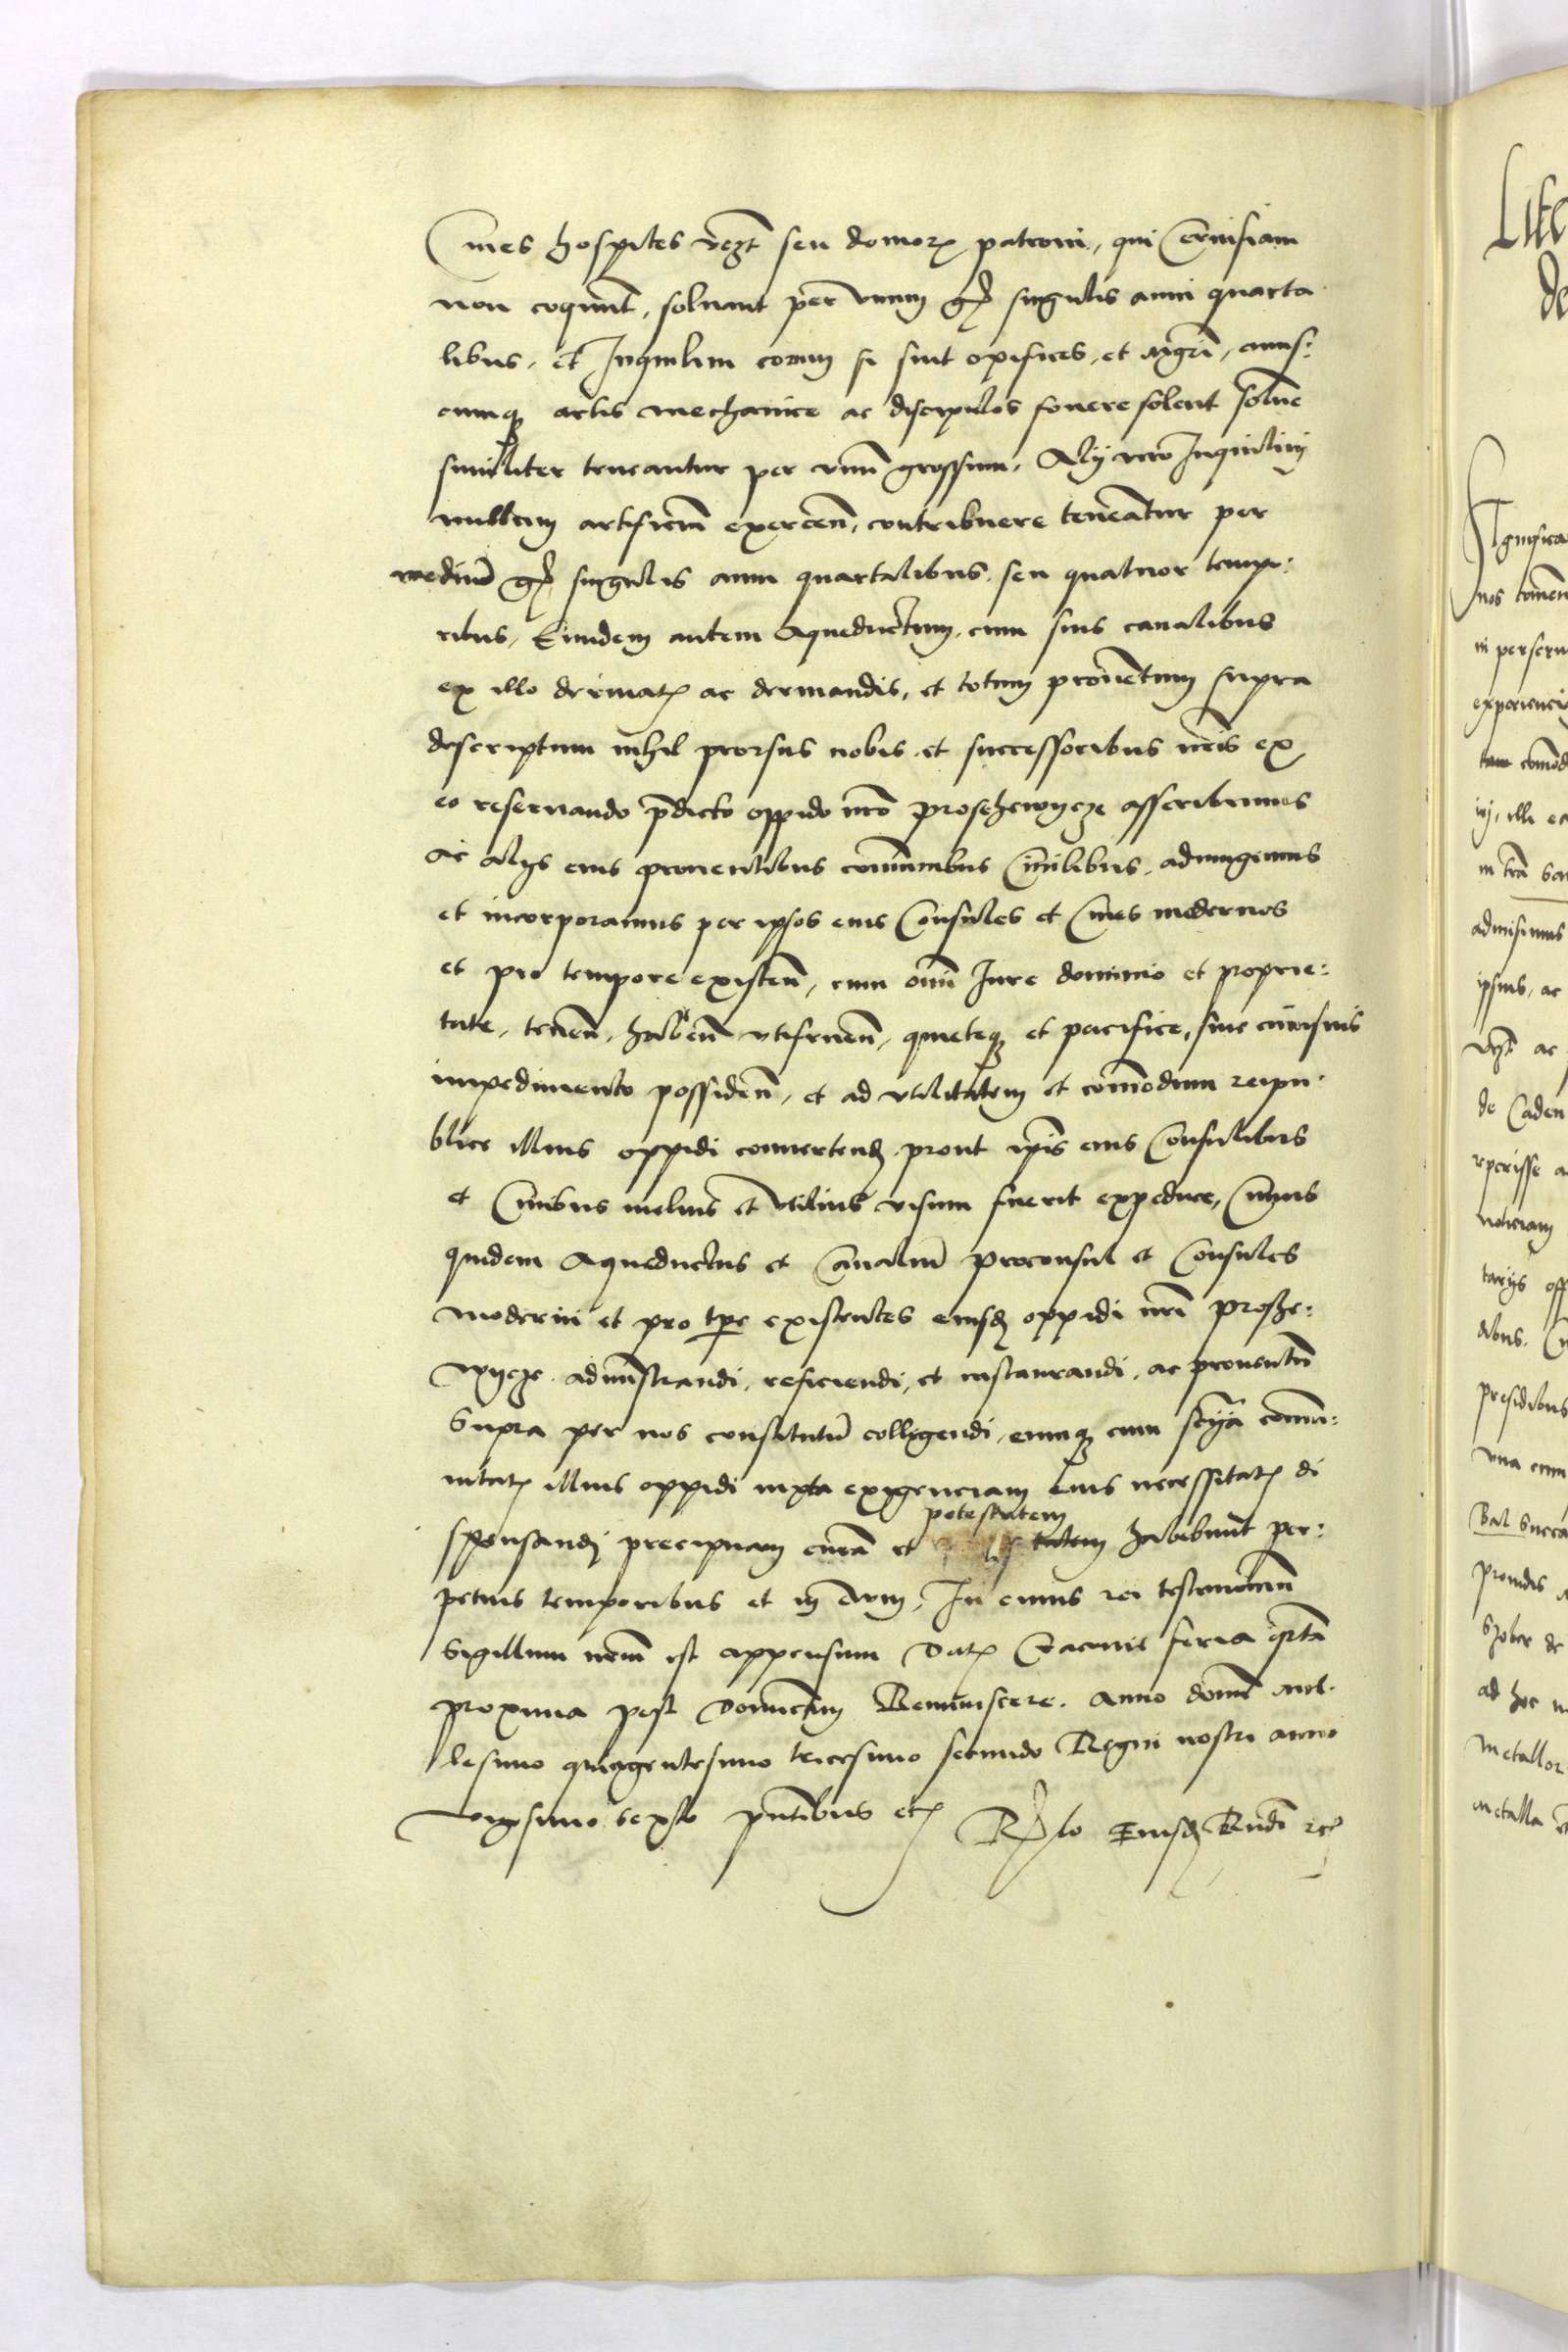 Cives hospites vero seu domorum patroni, qui Cervisiam
non coquunt, solvant per unum gr singulis anni quarta
libus, et Inquilini eorum si sint opifices, et mgri, cuius:
cumque artis mechanice ac discipulos fovere solent solvere
similiter teneantur per unum grossum. Alij vero Inquilinj
nullum artificium exercen, contribuere teneantur per
medium gr singulis anni quartalibus seu quatuor tempo:
ribus, Eundem autem Aqueductum cum suis canalibus
ex illo derivatis ac derivandis, et totum proventum supra
descriptum nihil prorsus nobis et successoribus nris ex
eo reservando pdicto oppido nro Proschewycze asscribimus
Ac alijs eius proventibus communibus civilibus, adiungimus
et incorporamus per ipsos eius Consules et Cives modernos
et pro tempore existen, cum omni Iure dominio et proprie:
tate, tenen, haben utifruen, quieteque et pacifice, sine cuiusvis
impedimento possiden, et ad utilitatem et commodum reipu
blice illius oppidi convertend, prout ipis eius Consulibus
et Civibus melius et utilius visum fuerit expedire, Cuius
quidem Aqueductus et Canalium Proconsul et Consules
moderni et pro tpre existentes eiusd oppidi nri Prosche:
wycze administrandi, reficiendi, et instaurandi, ac proventum
supra per nos constitutum colligendi, eumque cum commu:
nitatis illius oppidi iuxta exigenciam eius necessitatis di
spensandj precipuam curam et potestatem habebunt per:
petuis temporibus et in evum, In cuius rei testimonium
Sigillum nrum est appensum Dat Cracovie feria qrta
proxima post Dominicam Reminiscere. Anno domini mil
lesimo quingentesimo tricesimo secundo Regni nostri anno
vigesimo sexto pntibus etc Rlo Eiusd Rndi etc